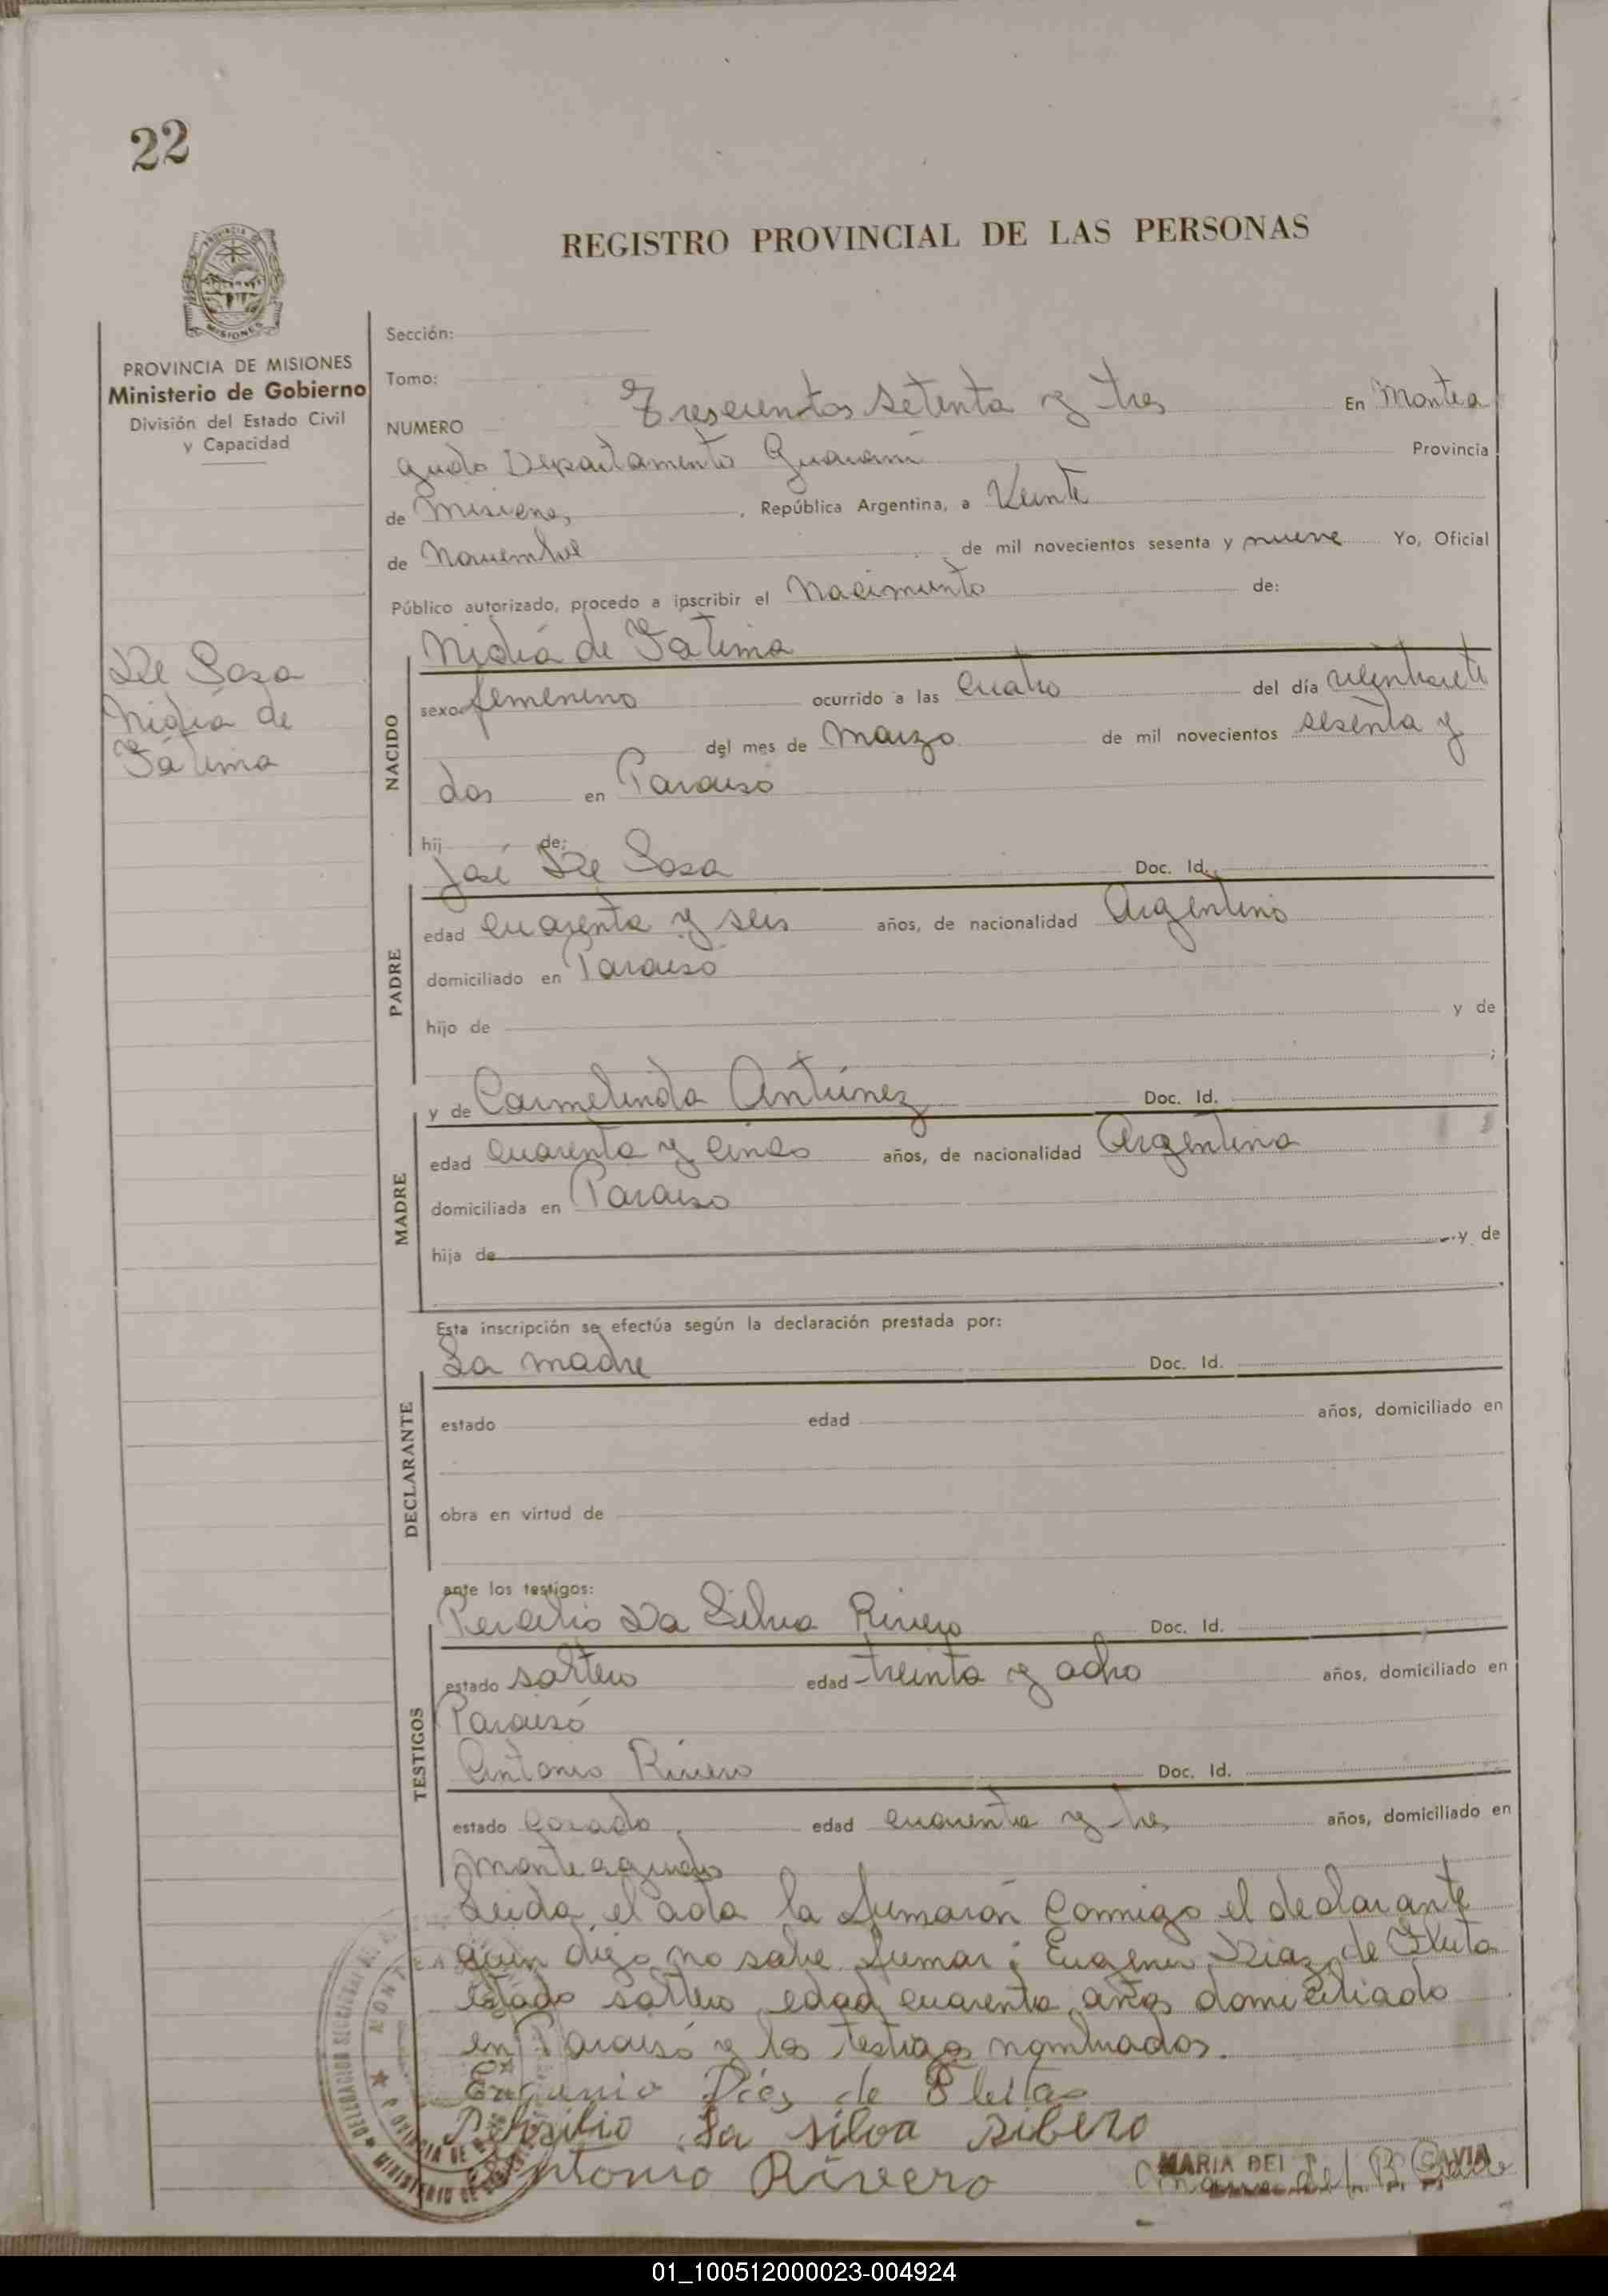 22
REGISTRO PROVINCIAL DE LAS PERSONAS
MISIONES
PROVINCIA DE MISIONES
Ministerio de Gobierno
División del Estado Civil
y Capacidad
De Sosa
Nidia de
Fátima
Sección:
Tomo:
NUMERO Trescientos setenta y tres En Montea
gudo Departamento Guaraní Provincia
de Misiones, República Argentina, a Veinte
de Noviembre de mil novecientos sesenta y nueve Yo, Oficial
Público autorizado, procedo a inscribir el Nacimiento de:
NACIDO
Nidia de Fatima
sexo femenino ocurrido a las cuatro del día veintisiete
del mes de Marzo de mil novecientos sesenta y
dos en Paraiso
hij de:
PADRE
José De Sosa Doc. Id.
edad cuarenta y seis años, de nacionalidad Argentino
domiciliado en Paraiso
hijo de y de
;
MADRE
y de Carmelinda Antúnez Doc. Id.
edad cuarenta y cinco años, de nacionalidad Argentina
domiciliada en Paraiso
hija de y de
Esta inscripción se efectúa según la declaración prestada por:
DECLARANTE
La madre Doc. Id.
estado edad años, domiciliado en
obra en virtud de
ante los testigos:
TESTIGOS
Da Silva Rivero Doc. Id.
estado soltero edad treinta y ocho años, domiciliado en
Paraiso
Antonio Rivero Doc. Id.
estado Casado edad cuarenta y tres años, domiciliado en
Monteagudo
Leida el acta la firmarán conmigo el declarante
quien dijo no sabe firmar; Eugenio Diaz de
estado soltero edad cuarenta años domiciliado
en Paraiso y los testigos nombrados.
Eugenio de Fleitas
Da silva Ribero
Antonio Rivero
MARIA DEL B. GAVIA
01_100512000023-004924